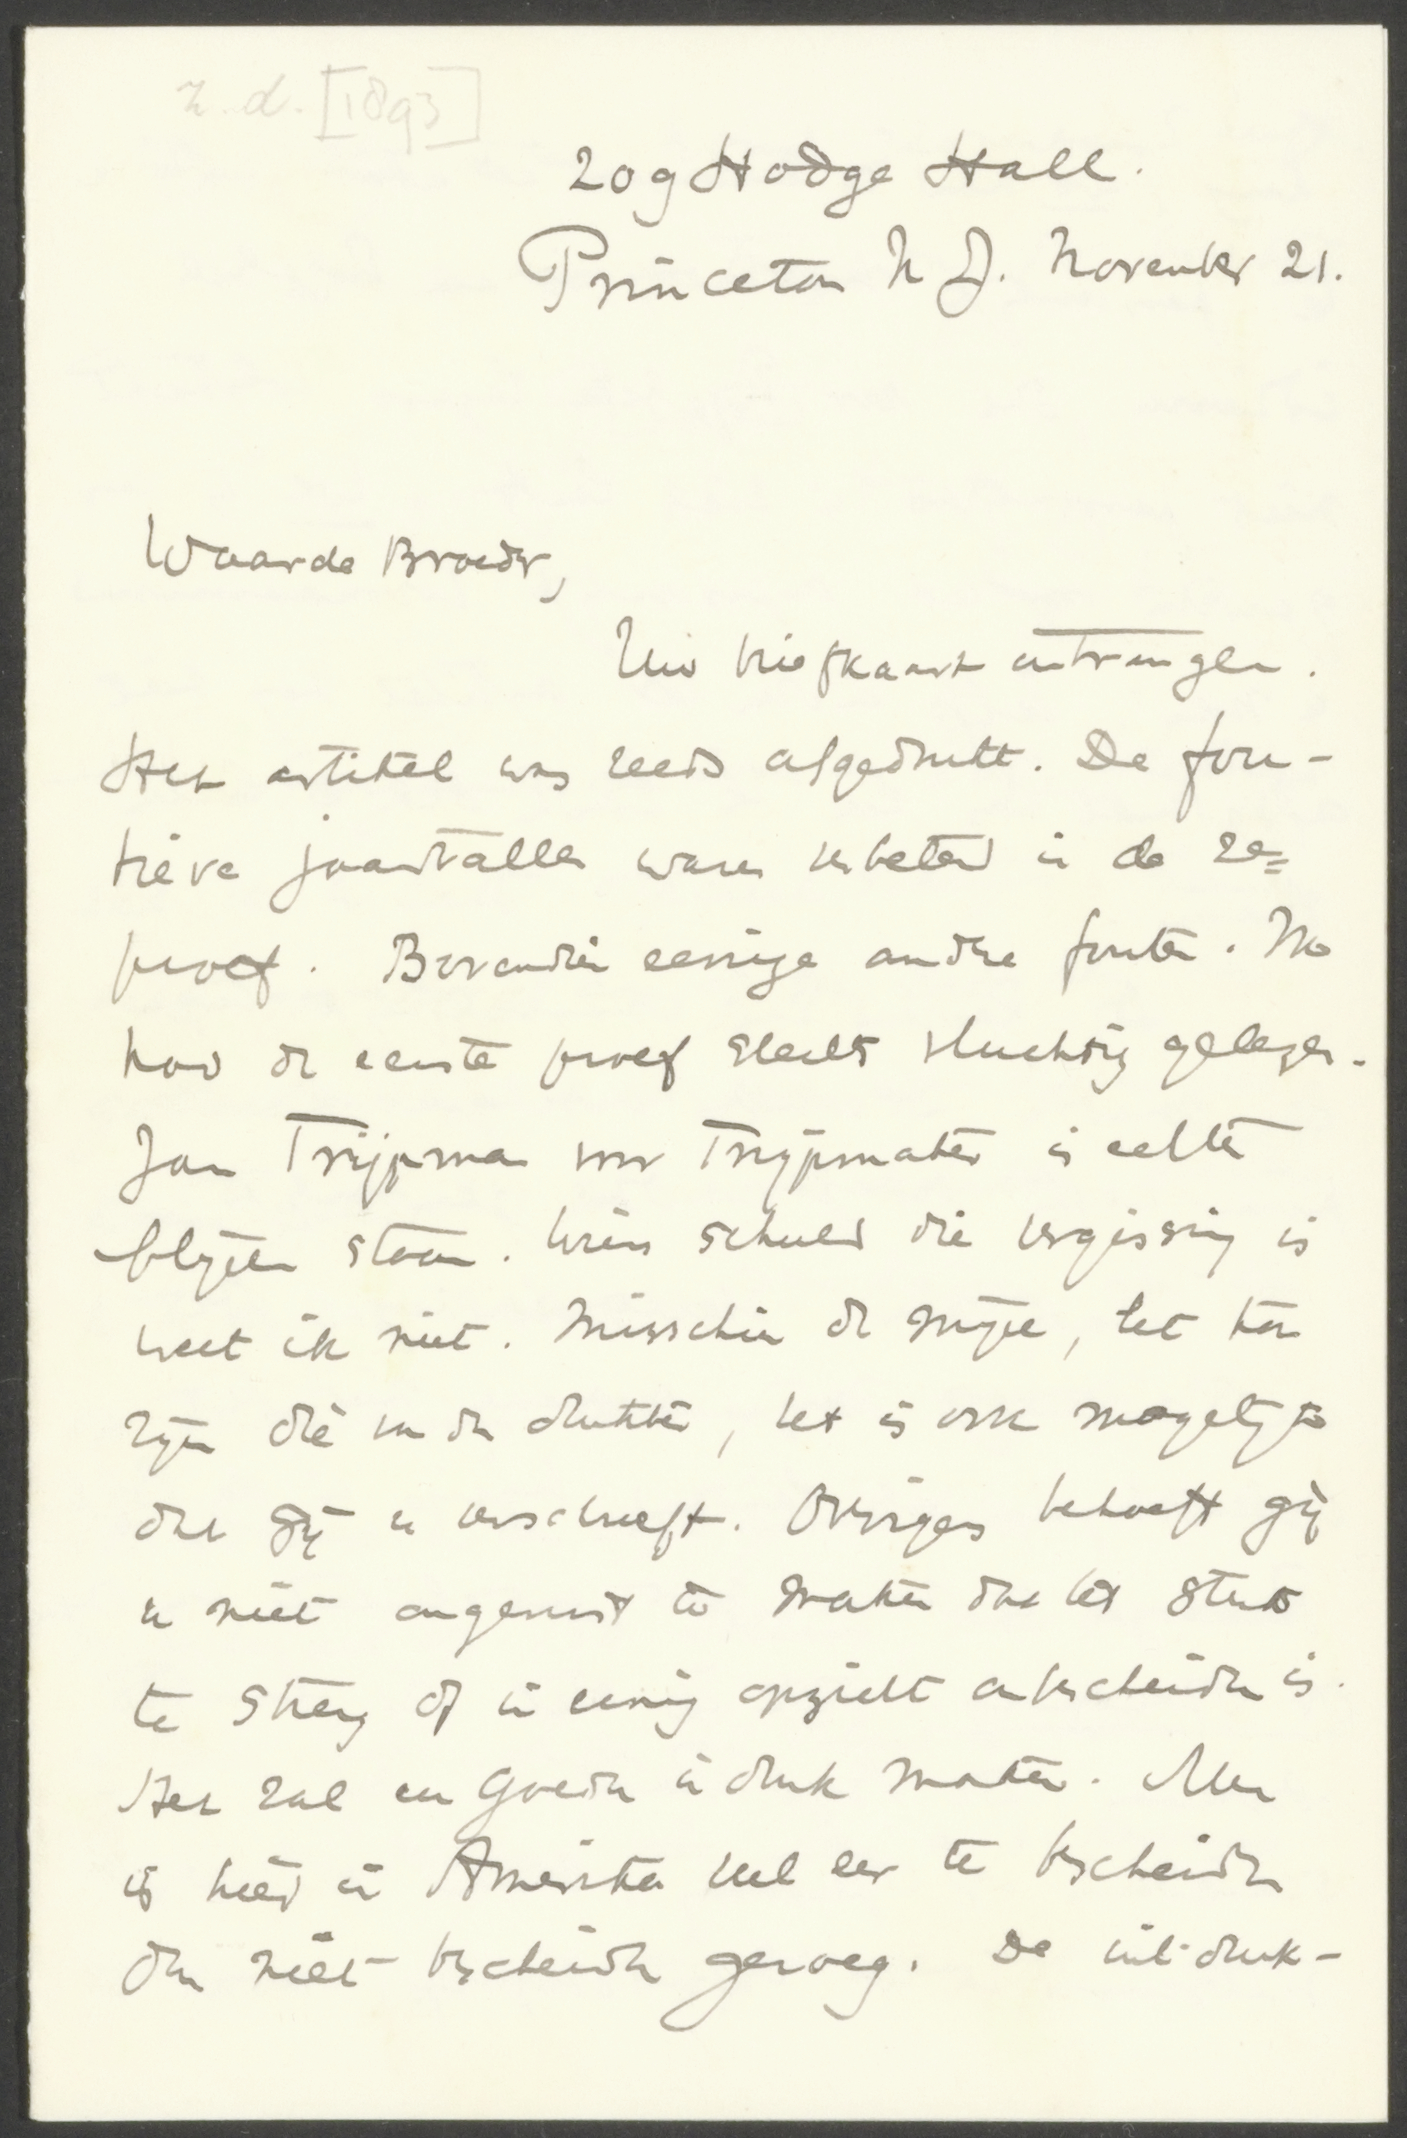 z.d. [1893]
209 Hodge Hall.
Princeton N J. November 21.
Waarde Broeder,
Uw briefkaart ontvangen.
Het artikel was reeds afgedrukt. De fou-
tieve jaartallen waren verbeterd in de re=
proef. Bovendien eenige andre fouten.
had de eerste proef slechts vluchtig gelezen.
Jan Trijpma voor Trijpmaker is echter
blijven staan. Wiens schuld die vergissing is
weet ik niet. Misschien de mijne, het kan
zijn die van den drukker, het is ook mogelijk
dat gij u verschreeft. Overigens behoeft gij
u niet ongerust te maken dat het stuk
te streng of in eenig opzicht onbescheiden is.
Het zal een goeden indruk maken. Men
is hier in Amerika veel eer te bescheiden
dan niet bescheiden genoeg. De uitdruk-